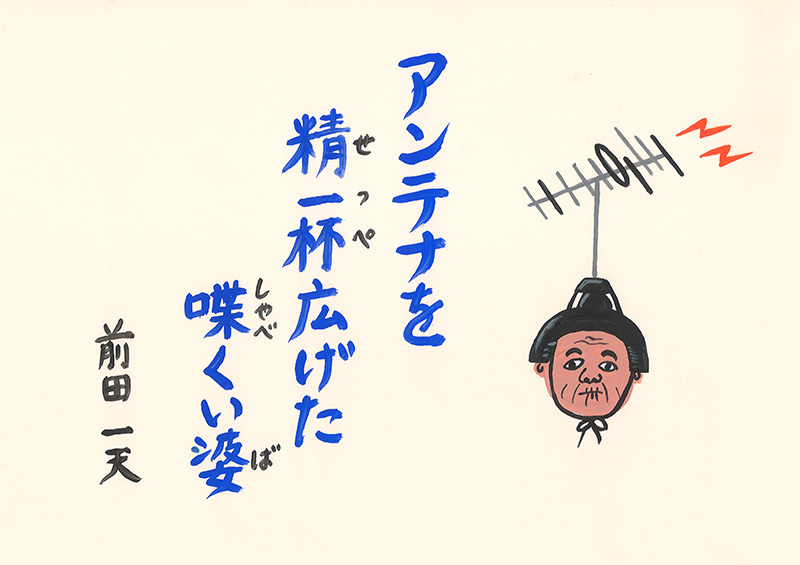 アンテナを
精一杯広げた
せっぺ
喋くい婆
しゃべ
ば
前田一天